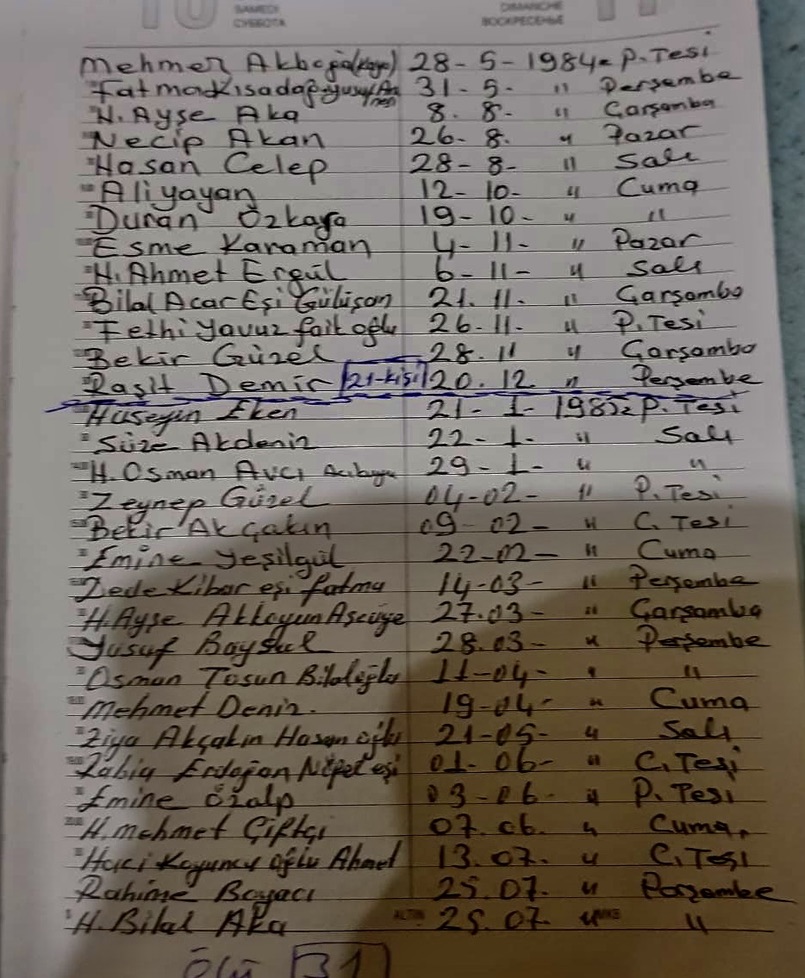 SAMEDI DIMANCHE
СУББОТА ВОСКРЕСЕНЬЕ
Mehmer Akboğa(Kaya) 28-5-1984- P.Tesi
Fatma Kısadağ 31-5- " Perşembe
H. Ayşe Aka 8.8- " Çarşamba
Necip Akan 26-8. " Pazar
Hasan Celep 28-8- " Salı
Ali yayan 12-10- " Cuma
Duran Özkaya 19-10- " "
Esme Karaman 4-11- " Pazar
H. Ahmet Ergül 6-11- " Salı
Bilal Acar Eşi Gülüşan 21.11. " Çarşamba
Fethi Yavuz faik oğlu 26-11. " P.Tesi
Bekir Güzel 28.11 " Çarşamba
Raşit Demir 21-kişi 20.12. " Perşembe
Hüseyin Eken 21-1-1985 P.Tesi
Süze Akdeniz 22-1- " Salı
H. Osman Avcı 29-1- " "
Zeynep Güzel 04-02- " P.Tesi
Bekir Akçakın 09-02- " C.Tesi
Emine Yeşilgül 22-02- " Cuma
Dede Kibar eşi fatma 14-03- " Perşembe
H. Ayşe Akkoyun 27.03- " Çarşamba
Yusuf Baysul 28.03- " Perşembe
Osman Tosun Bilaloğlu 11-04- " "
Mehmet Deniz. 19-04- " Cuma
Ziya Akçakın Hasan oğlu 21-05- " Salı
Rabia Erdoğan eşi 01-06- " C.Tesi
Emine Özalp 03-06- " P.Tesi
H. Mehmet Çiftçi 07.06. " Cuma.
Haci Koyuncu oğlu Ahmet 13.07. " C.Tesi
Rahime Boyacı 25.07. " Perşembe
H. Bilal Aka 25.07. " "
Ölü 31